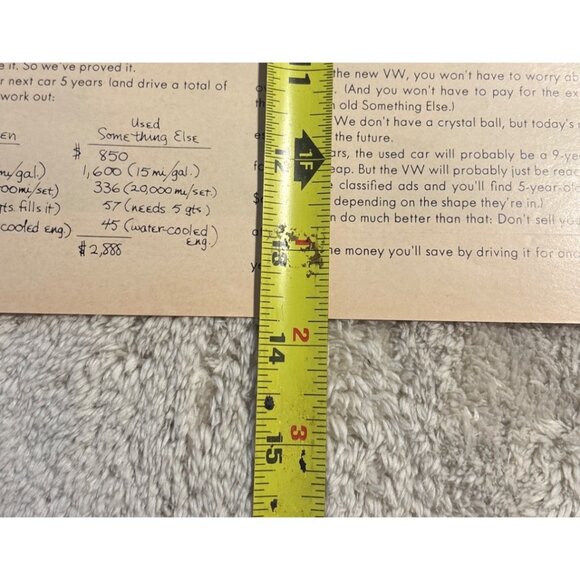 e it. So we've proved it.
r next car 5 years (and drive a total of
work out:
Used
Something Else
$ 850
mi/gal.) 1,600 (15 mi/gal.)
00 mi/set) 336 (20,000 mi/set.)
ts. fills it) 57 (needs 5 qts.)
cooled eng.) 45 (water-cooled eng.)
$2,888
11
12
1F
13
1
14
2
15
3
the new VW, you won't have to worry ab
. (And you won't have to pay for the ex
old Something Else.)
We don't have a crystal ball, but today's
the future.
ars, the used car will probably be a 9-ye
eap. But the VW will probably just be reac
e classified ads and you'll find 5-year-o
depending on the shape they're in.)
n do much better than that: Don't sell you
he money you'll save by driving it for ano